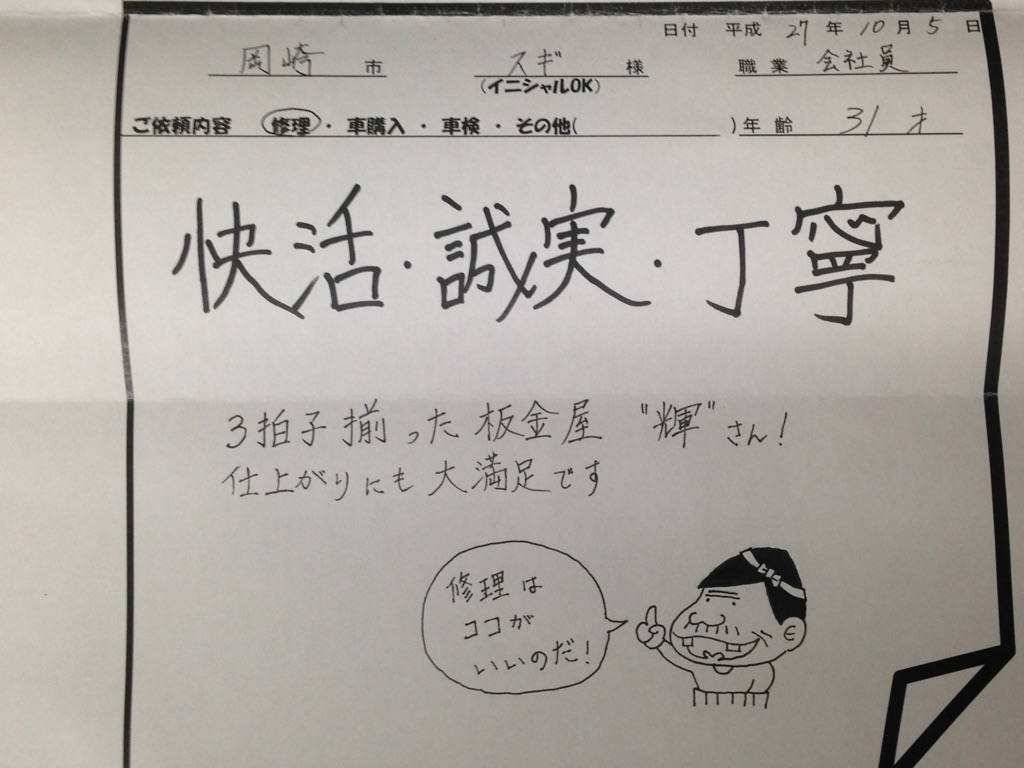 日付 平成 27 年 10 月 5 日
岡崎 市 スギ 様 職業 会社員
(イニシャルOK)
ご依頼内容 修理・車購入・車検・その他( )年齢 31才
快活・誠実・丁寧
3拍子揃った板金屋 "輝"さん!
仕上がりにも大満足です
修理は
ココが
いいのだ!